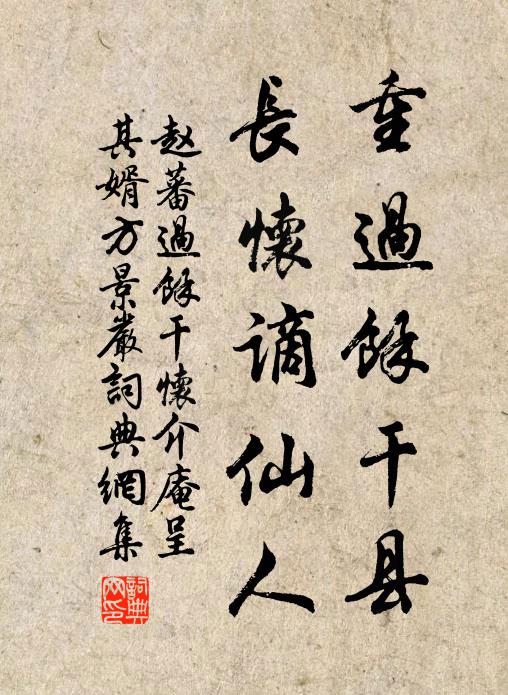 重過餘干县
長懷謫仙人
赵蕃過餘干懷介庵呈
其婿方景嚴詞典網集
詞典
网印